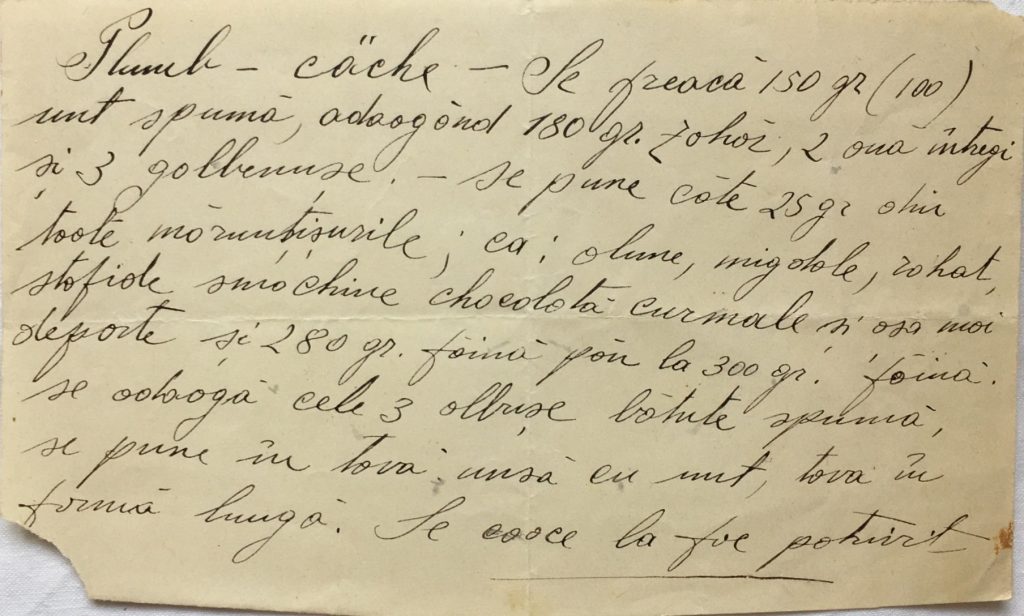 Plumb - cäche - Se freacă 150 gr (100)
unt spumă, adaogând 180 gr. zahăr, 2 ouă întregi
și 3 galbenușe. - se pune câte 25 gr din
toate mărunțișurile; ca: alune, migdale, rahat,
stafide smochine chocolată curmale și așa mai
departe și 280 gr. făină păn la 300 gr. făină.
se adaogă cele 3 albușe bătute spumă,
se pune în tavă unsă cu unt, tava în
formă lungă. Se coace la foc potrivit